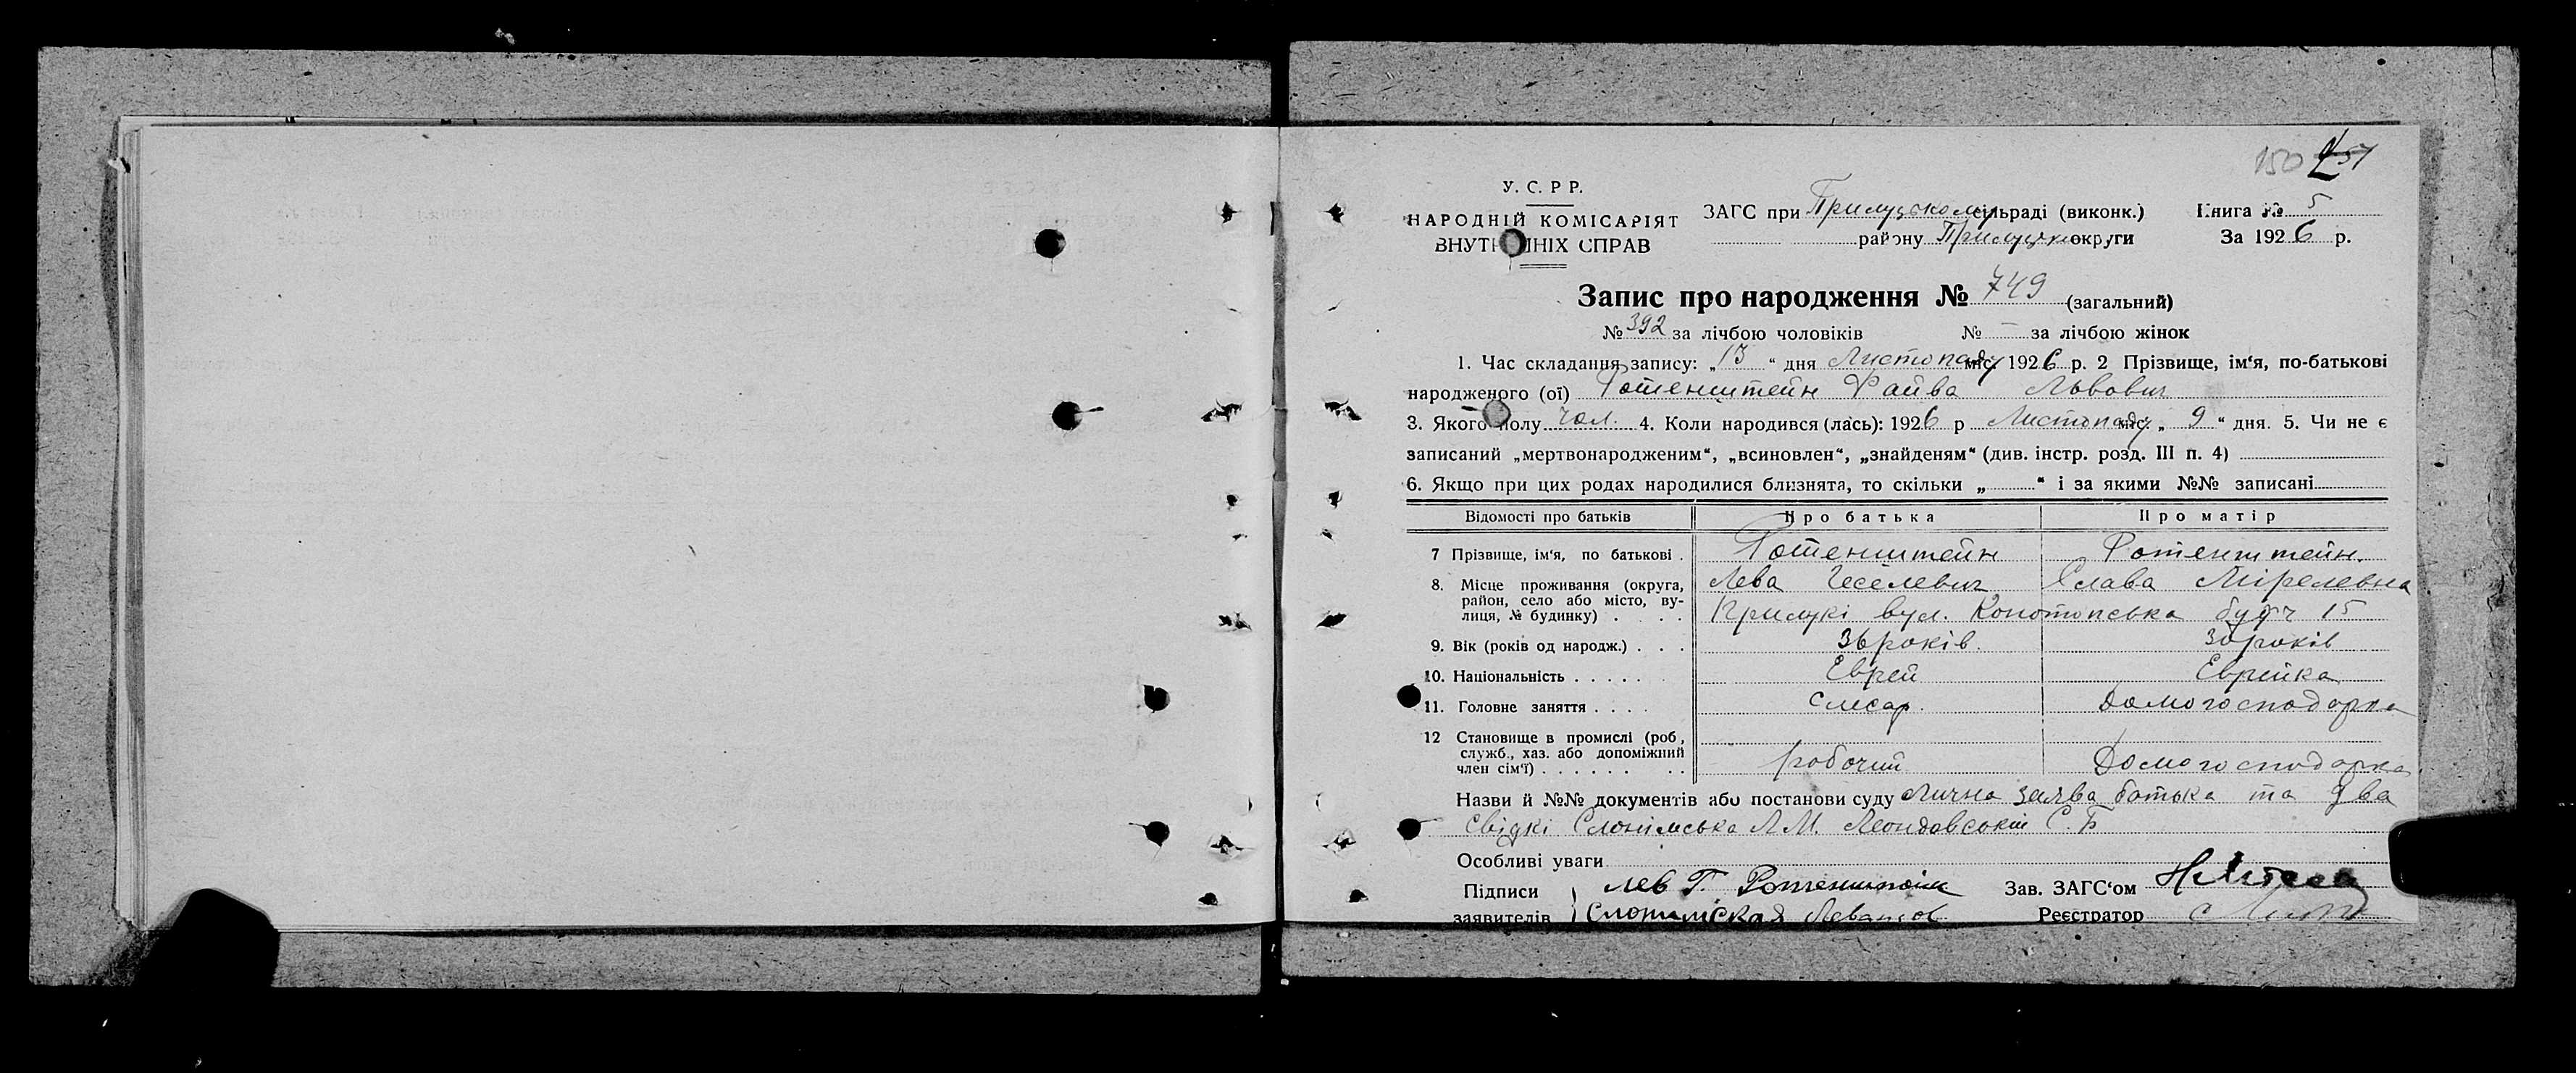 150 151
У. С. Р Р.
НАРОДНІЙ КОМІСАРІЯТ
ВНУТРІШНІХ СПРАВ
ЗАГС при Прилуцькому сільраді (виконк.) Книга № 5
району Прилуцької округи За 1926 р.
Запис про народження № 749 (загальний)
№ 392 за лічбою чоловіків № — за лічбою жінок
1. Час складання запису: „13“ дня Листопаду міс. 1926 р. 2 Прізвище, ім‘я, по-батькові
народженого (ої) Ротенштейн Файва Львович
3. Якого полу чол. 4. Коли народився (лась): 1926 р Листопаду міс. „9“ дня. 5. Чи не є
записаний „мертвонародженим“, „всиновлен“, „знайденям“ (див. інстр. розд. III п. 4)
6. Якщо при цих родах народилися близнята, то скільки „ “ і за якими №№ записані
Відомості про батьків Про батька Про матір
7 Прізвище, ім‘я, по батькові . Ротенштейн Ротенштейн
8. Місце проживання (округа, Лева Геселевич Слава Мірелевна
район, село або місто, ву-
лиця, № будинку) . . . . Прилукі вул. Конотопська буд ч 15
9. Вік (років од народж.) . . . 36 років. 30 років
10. Національність . . . . . . Еврей Еврейка
11. Головне заняття . . . . Слесар. Домогосподарка
12 Становище в промислі (роб,
служб., хаз. або допоміжний
член сім‘ї) . . . . . . . . робочий Домогосподарка
Назви й №№ документів або постанови суду Лична заява батька та два
свідкі Слонімська Л.М. С. Б
Особливі уваги
Підписи Лев Г. Ротенштейн Зав. ЗАГС‘ом
заявителів Слонимская Реєстратор